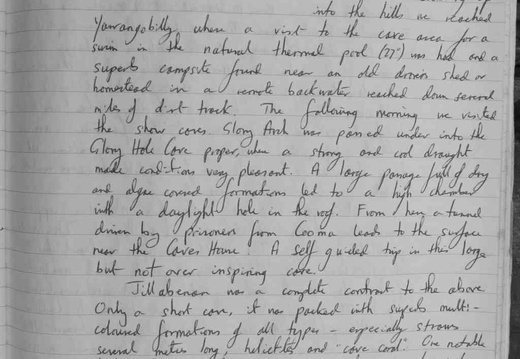 into the hills we reached
Yarrangobilly where a visit to the cave area for a
swim in the natural thermal pool (27°) was had and a
superb campsite found near an old drovers shed or
homestead in a remote backwater reached down several
miles of dirt track. The following morning we visited
the show caves. Glory Arch was passed under into the
Glory Hole Cave proper, where a strong and cool draught
made conditions very pleasant. A large passage full of dry
and algae covered formations led to a high chamber
with a daylight hole in the roof. From here a tunnel
driven by prisoners from Cooma leads to the surface
near the Caves House. A self guided trip in this large
but not over inspiring cave.
Jillabenan was a complete contrast to the above.
Only a short cave, it was packed with superb multi-
coloured formations of all types - especially straws
several metres long, helictites and "cave coral". One notable